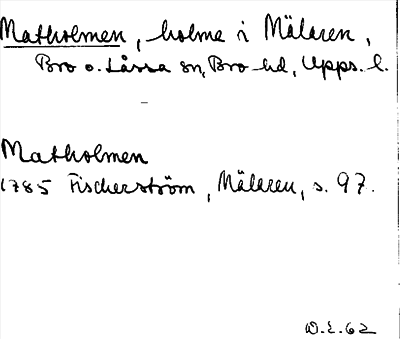 Matholmen, holme i Mälaren,
Bro o. Låssa sn, Bro hd, Upps. l.
Matholmen
1785 Fischerström, Mälaren, s. 97.
W.E. 62